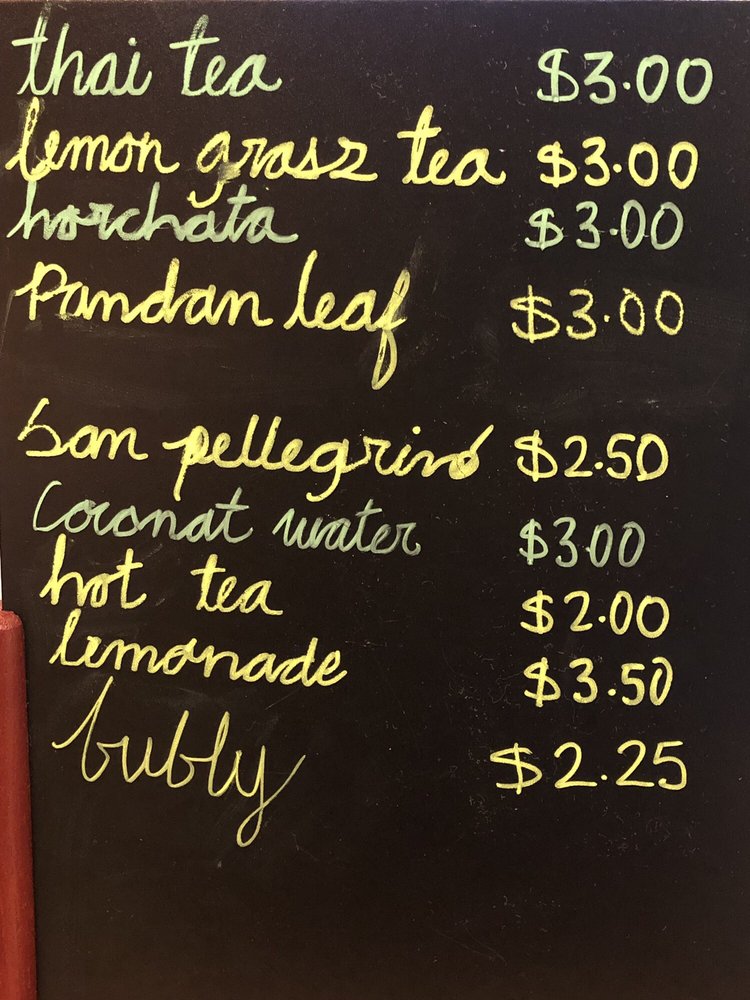 thai tea $3.00
lemon grass tea $3.00
horchata $3.00
Pandan leaf $3.00
San pellegrino $2.50
Coconat water $3.00
hot tea $2.00
lemonade $3.50
bubly $2.25